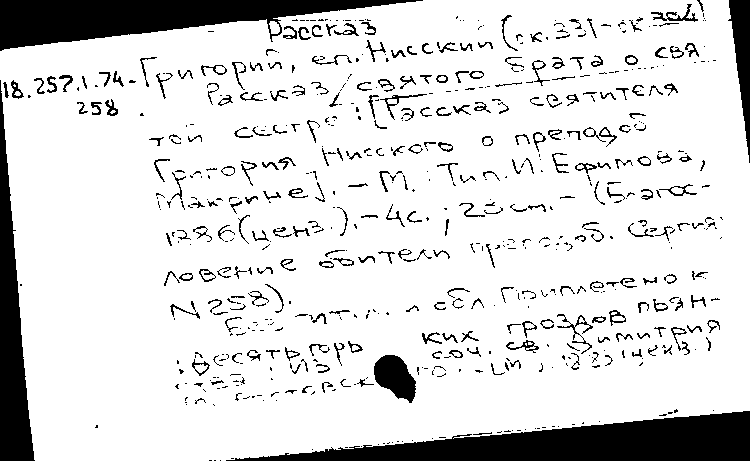 Рассказ
18.257.1.74- Григорий, еп. Нисский (ок. 331-ок 394)
258. Рассказ святого брата о свя
той сестре: [Рассказ святителя
Григория Нисского о преподоб
Макрине]. - М.: Тип. И. Ефимова,
1886 (ценз.). - 4с.; 23 см. - (Благос-
ловение обители преподоб. Сергия;
N 258).
Без тит. л. и обл. Приплетено к
: Десять горьких гроздов пьян-
ства: Из соч. св. Димитрия
(ценз.)